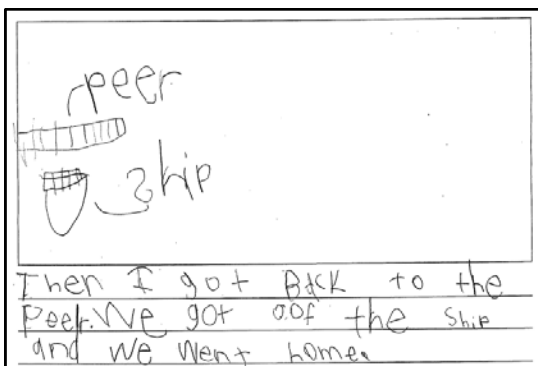 peer
ship
Then I got Back to the
Peer. We got oof the ship
and we went home.